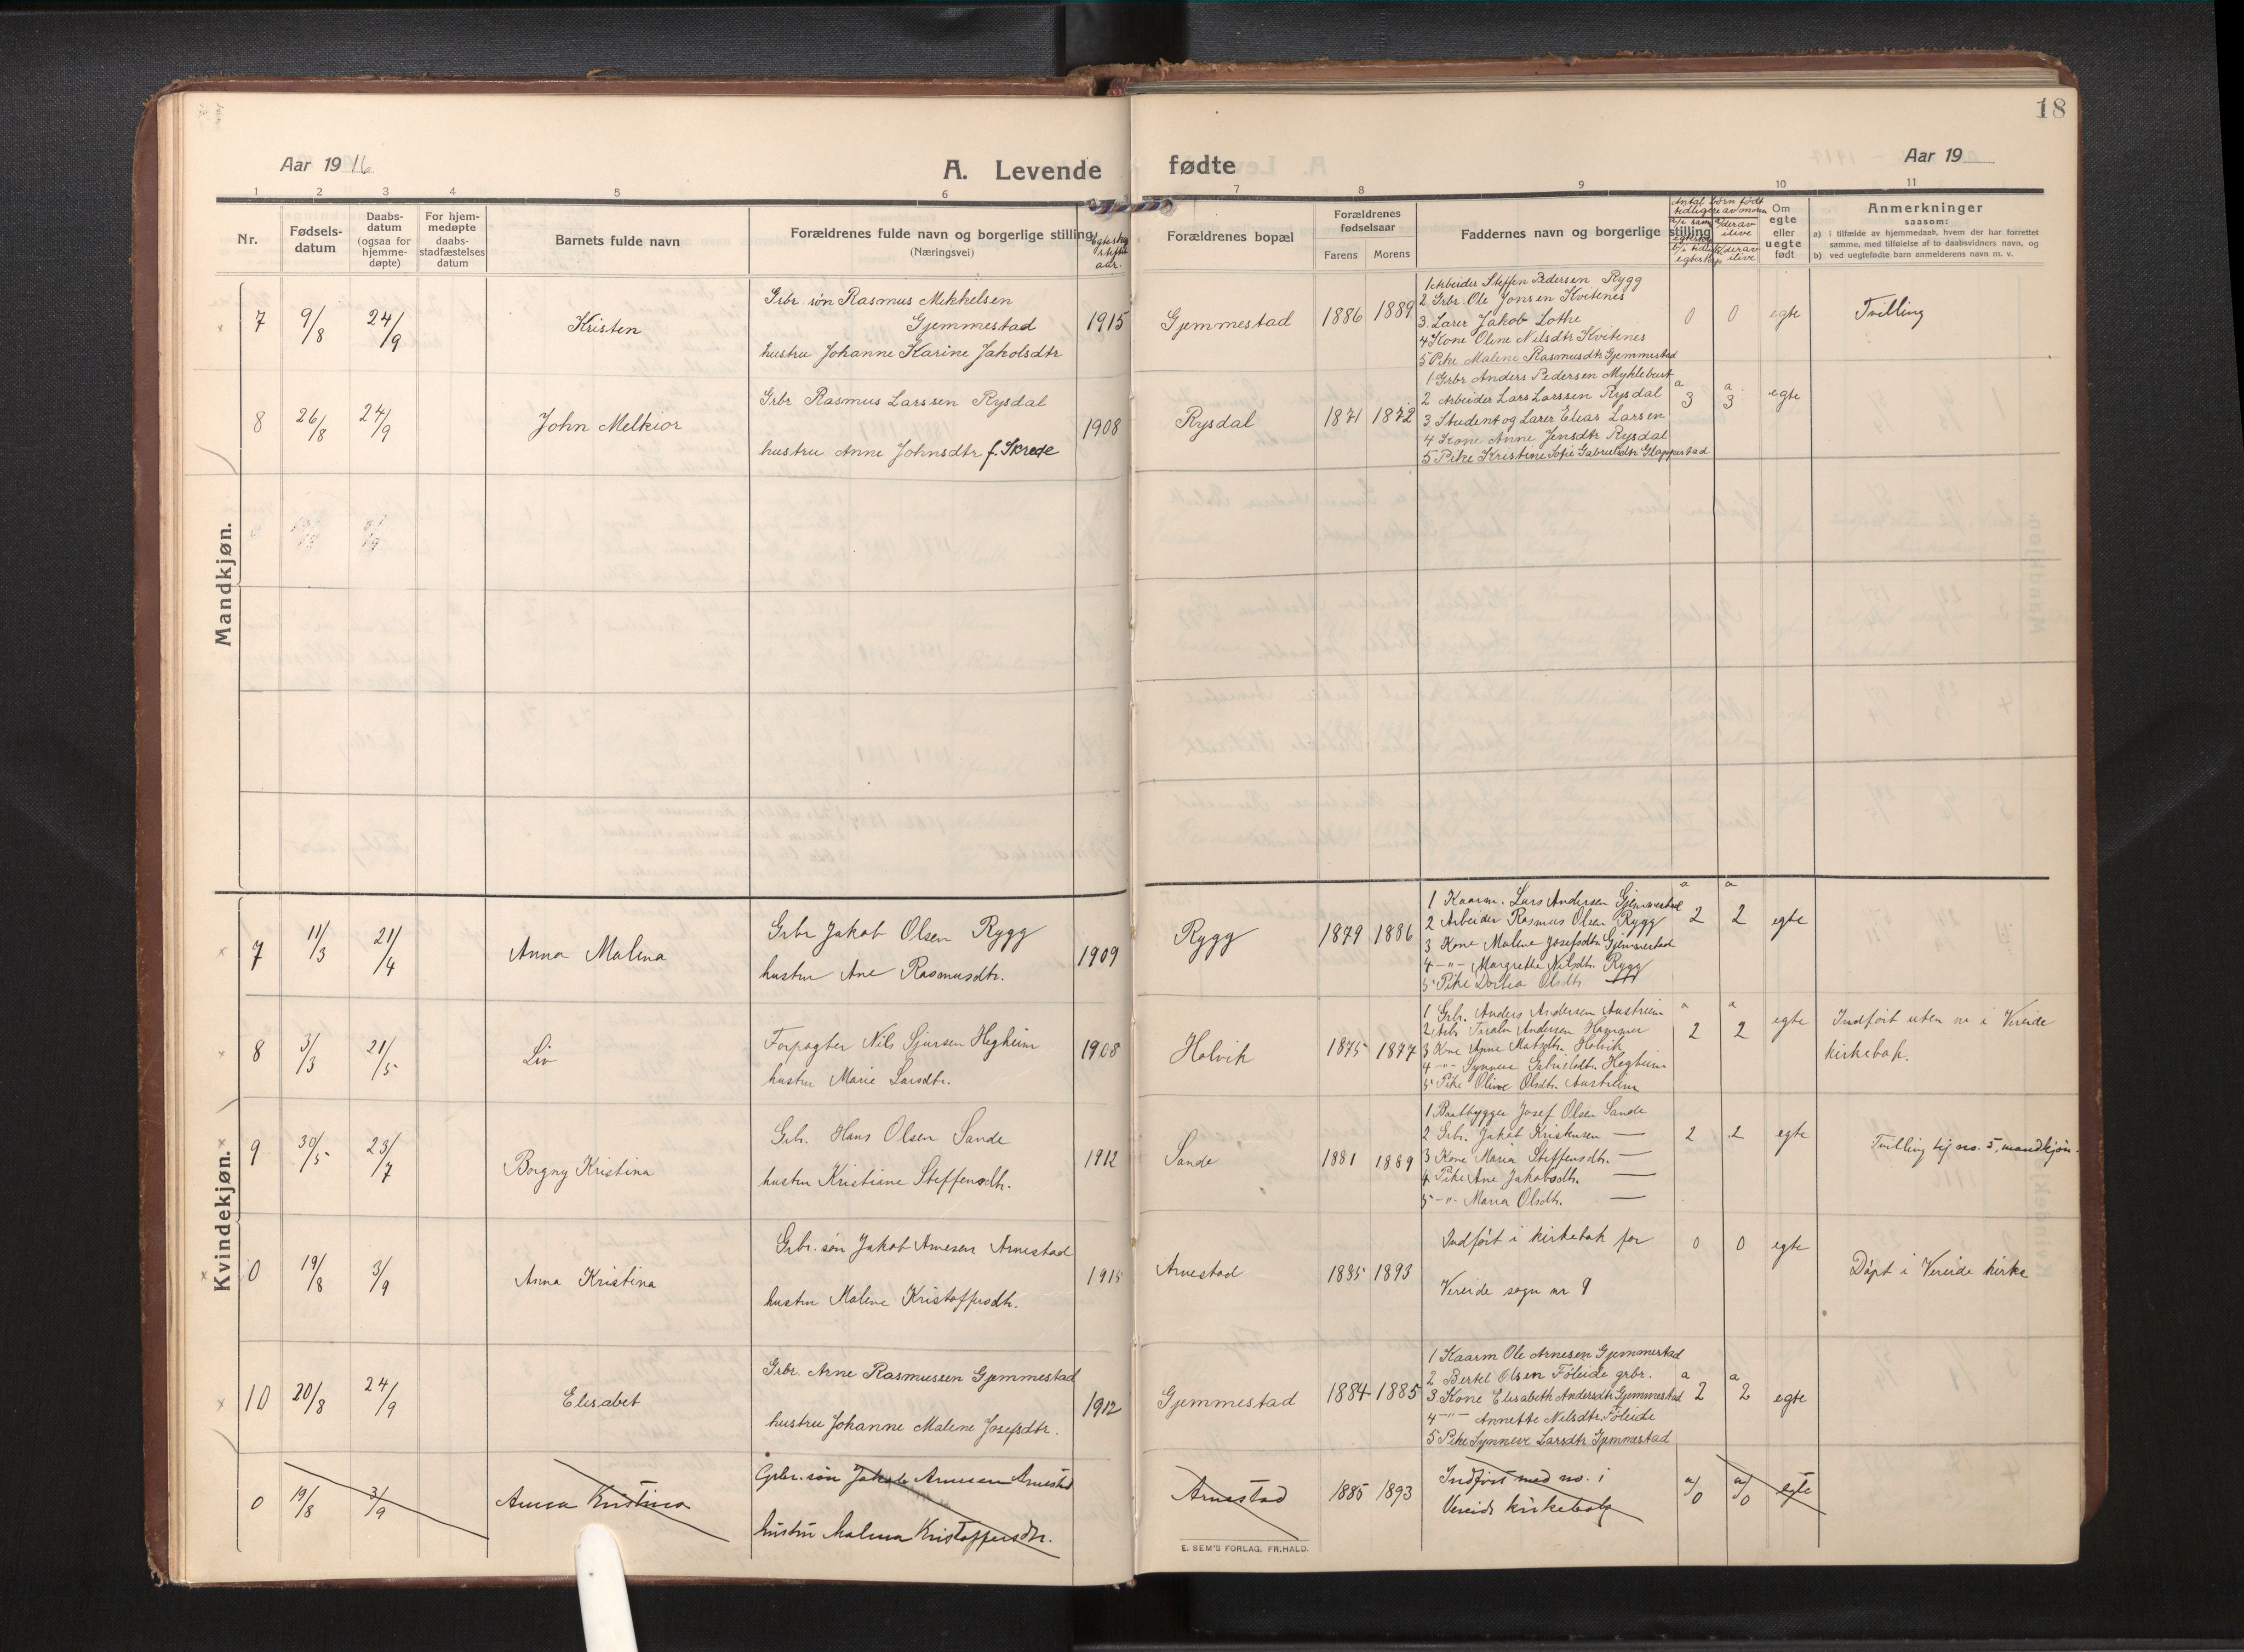 18
Aar 1916
A. Levende fødte
Aar 19
1 2 3 4 5 6 7 8 9 10 11
Nr.
Fødsels-
datum
Daabs-
datum
(ogsaa for
hjemme-
døpte)
For hjem-
medøpte
daabs-
stadfæstelses
datum
Barnets fulde navn
Forældrenes fulde navn og borgerlige stilling
(Næringsvei)
Forældrenes bopæl
Forældrenes
fødselsaar
Farens Morens
Faddernes navn og borgerlige stilling
Antal børn født
tidligere av moren
Om
egte
eller
uegte
født
Anmerkninger
saasom:
a) i tilfælde av hjemmedaab, hvem der har forrettet
samme, med tilføielse af to daabsvidners navn, og
b) ved uegtefødte barn anmelderens navn m. v.
Mandkjøn.
7 9/8 24/9 Kristen
Grbr. søn Rasmus Mikkelsen
Gjemmestad
hustru Johanne Karine Jakobsdtr
1915 Gjemmestad 1886 1889
1 Arbeider Steffen Pedersen Rygg
2 Grbr. Ole Jonsen Kvitenes
3. Lærer Jakob Lothe
4 Kone Oline Nilsdtr Kvitenes
5 Pike Malene Rasmusdtr Gjemmestad
0 0 egte Tvilling
8 26/8 24/9 John Melkior
Grbr Rasmus Larssen Rysdal
hustru Anne Johnsdtr f. Skrede
1908 Rysdal 1871 1872
1 Grbr Anders Pedersen Myklebust
2 Arbeider Lars Larssen Rysdal
3 Student og Lærer Elias Larsen
4 Kone Anne Jensdtr Rysdal
5 Pike Kristine Sofie Gabrielsdtr Gloppestad
a 3 a 3 egte
Kvindekjøn.
7 11/3 21/4 Anna Malena
Grbr Jakob Olsen Rygg
hustru Ane Rasmusdtr.
1909 Rygg 1879 1886
1 Kaarm. Lars Andersen Gjemmestad
2 Arbeider Rasmus Olsen Rygg
3 Kone Malene Josefsdtr. Gjemmestad
4 -"- Margrethe Nilsdtr. Rygg
5 Pike Dortea Olsdtr.
a 2 a 2 egte
8 3/3 21/5 Liv
Forpagter Nils Sjursen Hegheim
hustru Marie Larsdtr.
1908 Holvik 1875 1877
1 Grbr. Anders Andersen Austrheim
2 Arb. Andersen Hammer
3 Kone Anne Matsdtr. Holvik
4 -"- Synneve Gabrielsdtr. Hegheim
5 Pike Olive Olsdtr. Austrheim
a 2 a 2 egte
Indført uten nr i Vereide
kirkebok.
9 30/5 23/7 Borgny Kristina
Grb. Hans Olsen Sande
hustru Kristiane Steffensdtr.
1912 Sande 1881 1889
1 Baatbygger Josef Olsen Sande
2 Grbr. Jakob Kristensen —
3 Kone Maria Steffensdtr. —
4 Pike Ane Jakobsdtr. —
5 -"- Maria Olsdtr. —
2 2 egte
Tvilling til no. 5, mandkjøn.
0 19/8 3/9 Anna Kristina
Grbr. søn Jakob Arnesen Arnestad
hustru Malene Kristoffersdtr.
1915 Arnestad 1885 1893
Indført i kirkebok for
Vereide sogn nr 9
0 0 egte
Døpt i Vereide kirke
10 20/8 24/9 Elisabet
Grbr. Arne Rasmussen Gjemmestad
hustru Johanne Malene Josefsdtr.
1912 Gjemmestad 1884 1885
1 Kaarm Ole Arnesen Gjemmestad
2 Bertel Olsen Føleide grbr.
3 Kone Elisabeth Andersdtr Gjemmestad
4 -"- Annette Nilsdtr. Føleide
5 Pike Synneve Larsdtr Gjemmestad
a 2 a 2 egte
0 19/8 3/9 Anna Kristina
Grbr. søn Jakob Arnesen Arnestad
hustru Malena Kristoffersdtr.
Arnestad 1885 1893
Indført med no. i
Vereide kirkebok
a/0 a/0 egte
E. SEM'S FORLAG, FR.HALD.